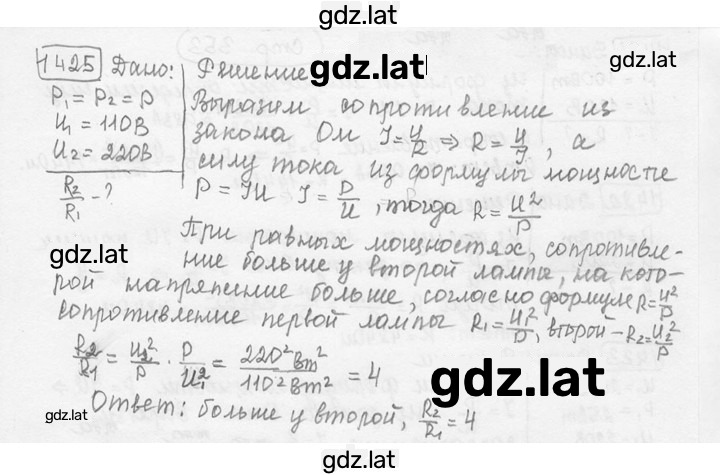 gdz.lat
1425 Дано: Решение
gdz.lat
P₁ = P₂ = P
U₁ = 110В
U₂ = 220В
R₂/R₁ - ?
Выразим сопротивление из
закона Ом I = U/R ⇒ R = U/I, а
силу тока из формулы мощности
P = IU I = P/U, тогда R = U²/P
При равных мощностях, сопротивле-
ние больше у второй лампы, на кото-
рой напряжение больше, согласно формуле R = U²/P
gdz.lat
gdz.lat
сопротивление первой лампы R₁ = U₁²/P, второй - R₂ = U₂²/P
R₂/R₁ = U₂²/P · P/U₁² = 220² Вт²/110² Вт² = 4
gdz.lat
Ответ: больше у второй, R₂/R₁ = 4
gdz.lat
gdz.lat